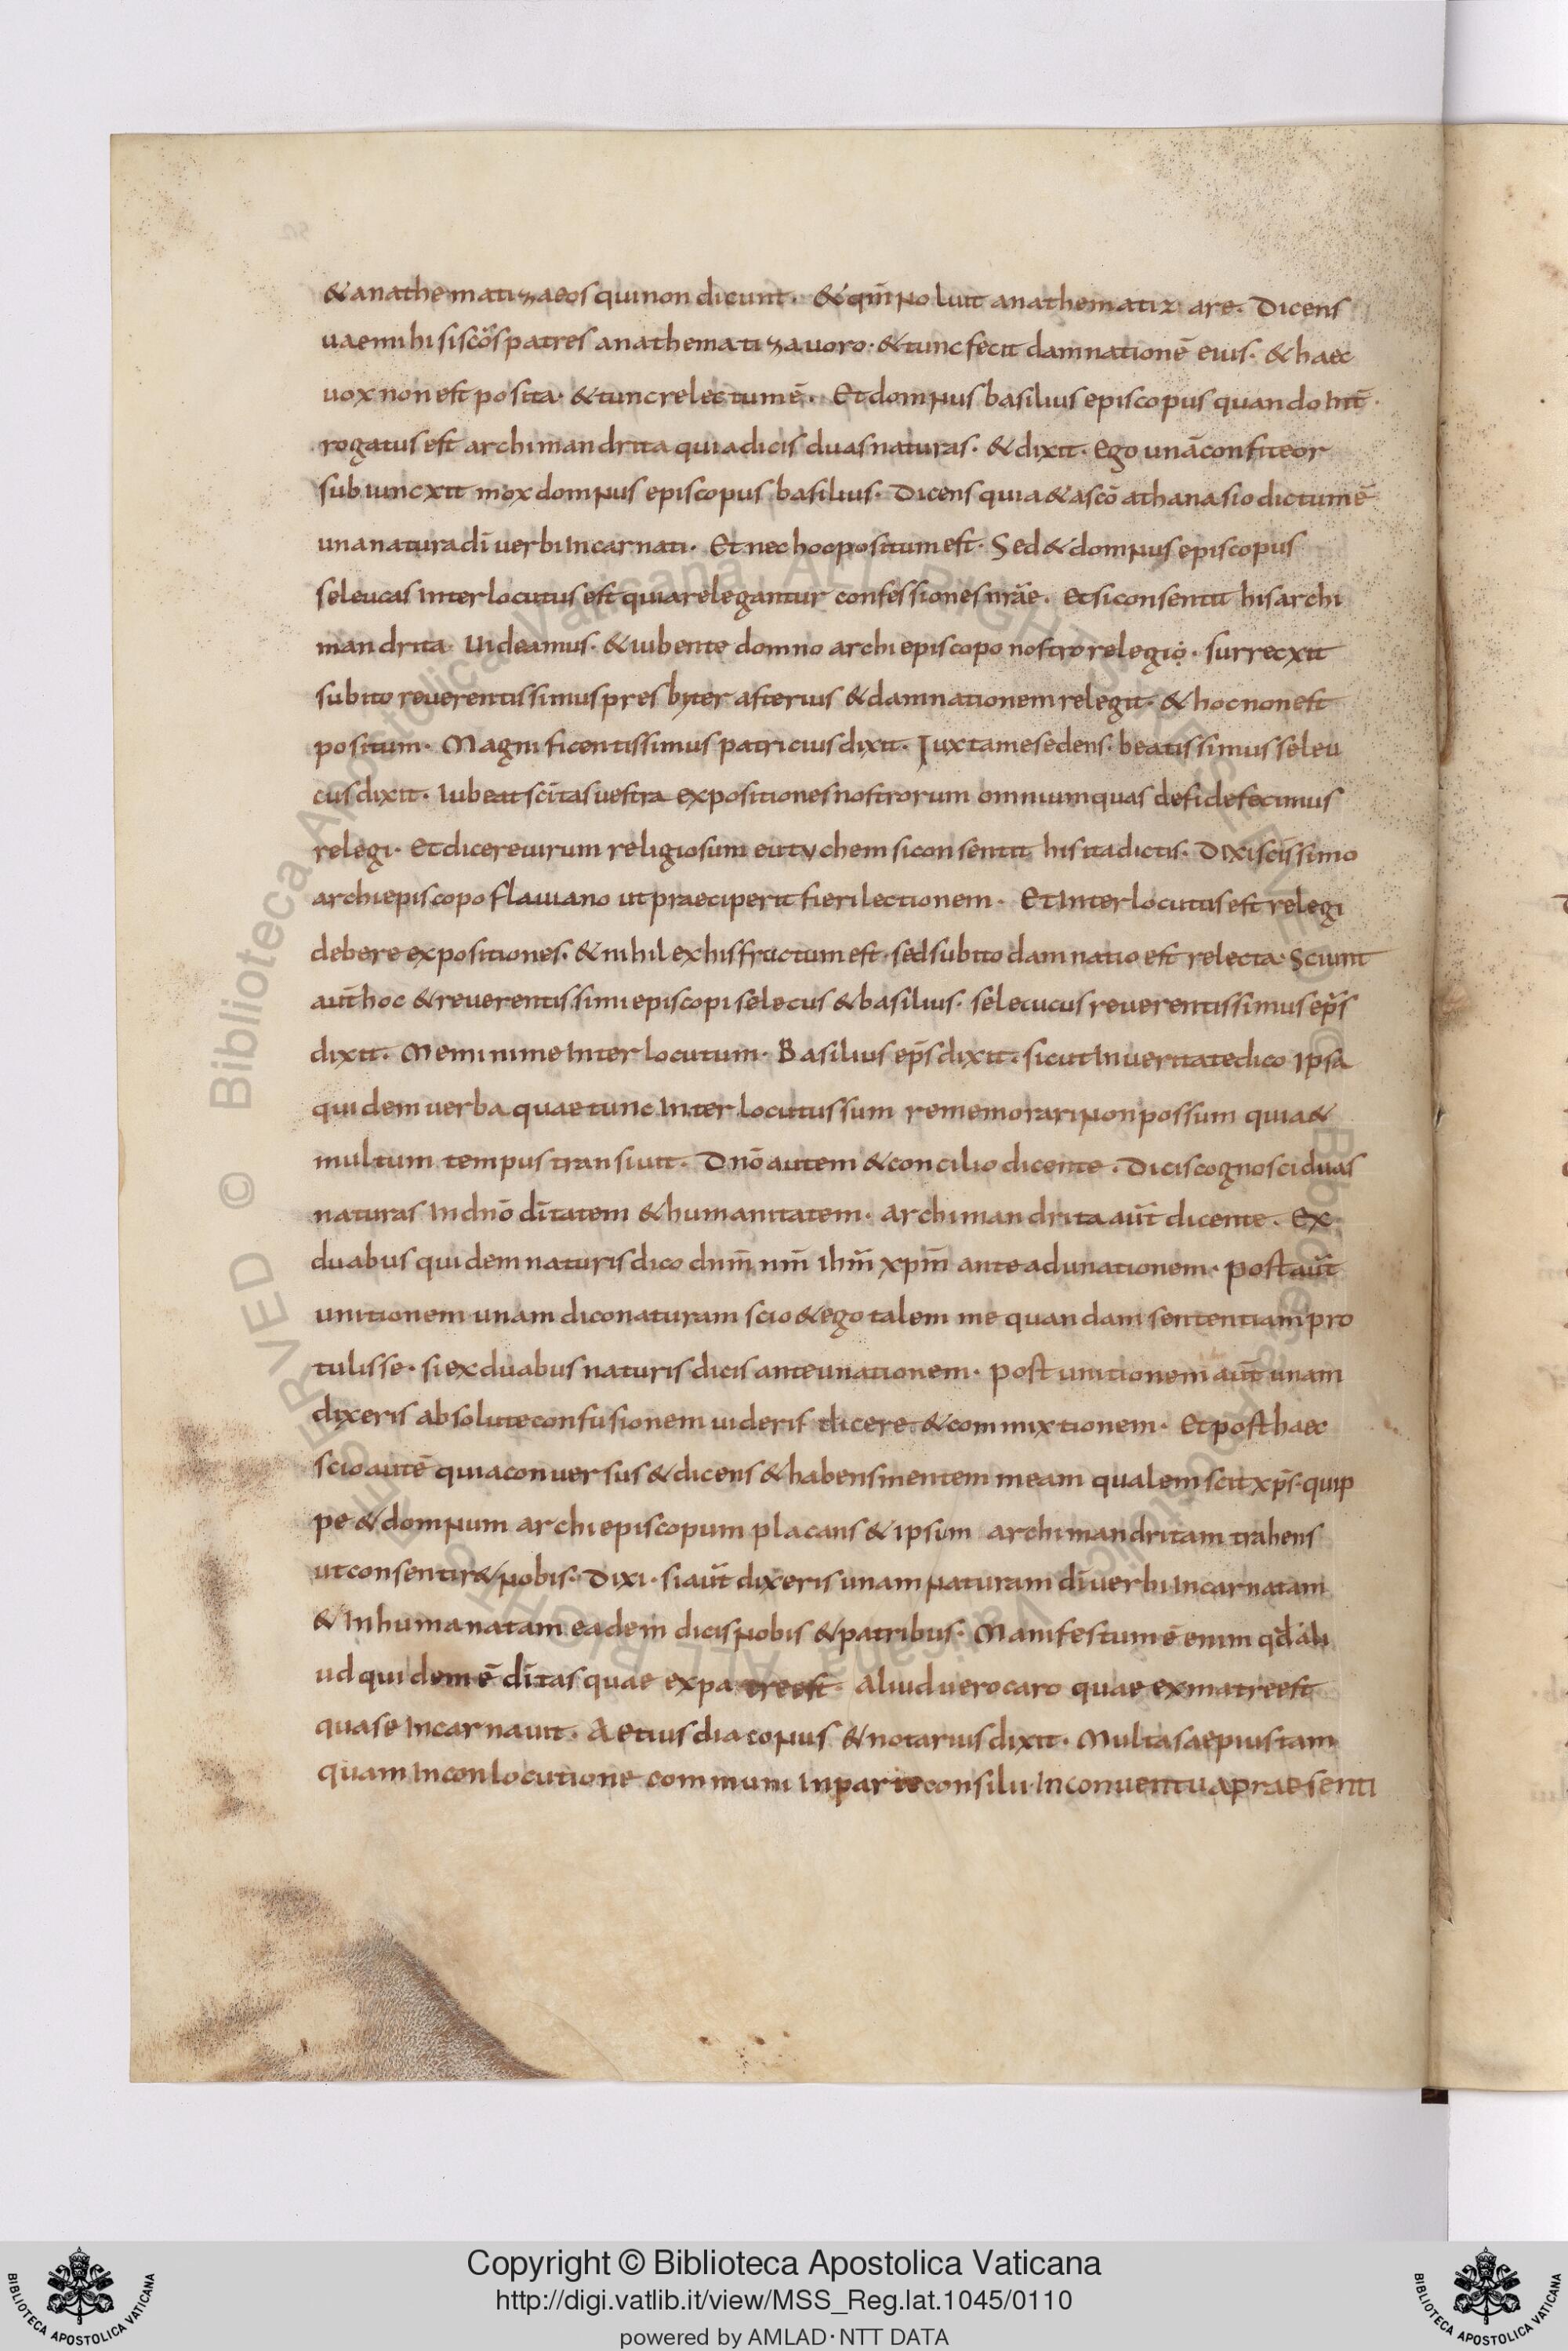 & anathematiza eos qui non dicunt · & qm̄ noluit anathematizare · Dicens
uae mihi si sc̄os patres anathematizauoro · & tunc fecit damnationē eius · & haec
uox non est posita · & tunc relectum ē · Et domnus basilius episcopus quando int̄
rogatus est archimandrita quia dicis duas naturas · & dixit · Ego unā confiteor
subiuncxit mox domnus episcopus basilius · Dicens quia & a sc̄o athanasio dictum ē
una natura dī uerbi incarnati · Et nec hoc positum est · Sed & domnus episcopus
seleucas interlocutus est quia relegantur confessiones nr̄ae · et si consentit his archi
mandrita uideamus · & iubente domno archiepiscopo nostro relegi · surrecxit
subito reuerentissimus presbyter asterius & damnationem relegit · & hoc non est
positum · Magnificentissimus patricius dixit · Iuxta me sedens · beatissimus seleu
cus dixit · Iubeat sc̄itas uestra expositiones nostrorum omnium quas de fide fecimus
relegi · Et dicere uirum religiosum eutychem si consentit his ita dictis · Dixi sc̄issimo
archiepiscopo flauiano ut praeciperit fieri lectionem · Et interlocutus est relegi
debere expositiones · & nihil ex his fructum est · sed subito damnatio est relecta · Sciunt
aut̄ hoc & reuerentissimi episcopi selecus & basilius · seleucus reuerentissimus ep̄s
dixit · Memini me interlocutum · Basilius ep̄s dixit · sicut in ueritate dico ipsa
quidem uerba quae tunc interlocutus sum rememorari non possum quia &
multum tempus transiuit · Dnō autem & concilio dicente · Dicis cognosci duas
naturas in dnō dītatem & humanitatem · archimandrita aut̄ dicente · Ex
duabus quidem naturis dico dnm̄ nm̄ ihm̄ xpm̄ ante adunationem · post aut̄
unitionem unam dico naturam scio & ego talem me quandam sententiam pro
tulisse · si ex duabus naturis dicis ante unationem · post unitionem aut̄ unam
dixeris absolute confusionem uideris dicere & commixtionem · Et post haec
scio autē quia conuersus & dicens & habens mentem meam qualem scit xp̄s · quip
pe & domnum archiepiscopum placans & ipsum archimandritam trahens
ut consentir& nobis · Dixi · si aut̄ dixeris unam naturam dī uerbi incarnatam
& inhumanatam eadem dicis nobis & patribus · Manifestum ē enim qd̄ ali
ud quidem ē dītas quae ex patre est · aliud uero caro quae ex matre est
qua se incarnauit · Aetius diaconus & notarius dixit · Multa saepius tam
quam in conlocutione communi in parte consilii · in conuentu a praesenti
Copyright © Biblioteca Apostolica Vaticana
http://digi.vatlib.it/view/MSS_Reg.lat.1045/0110
powered by AMLAD · NTT DATA
BIBLIOTECA APOSTOLICA VATICANA
BIBLIOTECA APOSTOLICA VATICANA